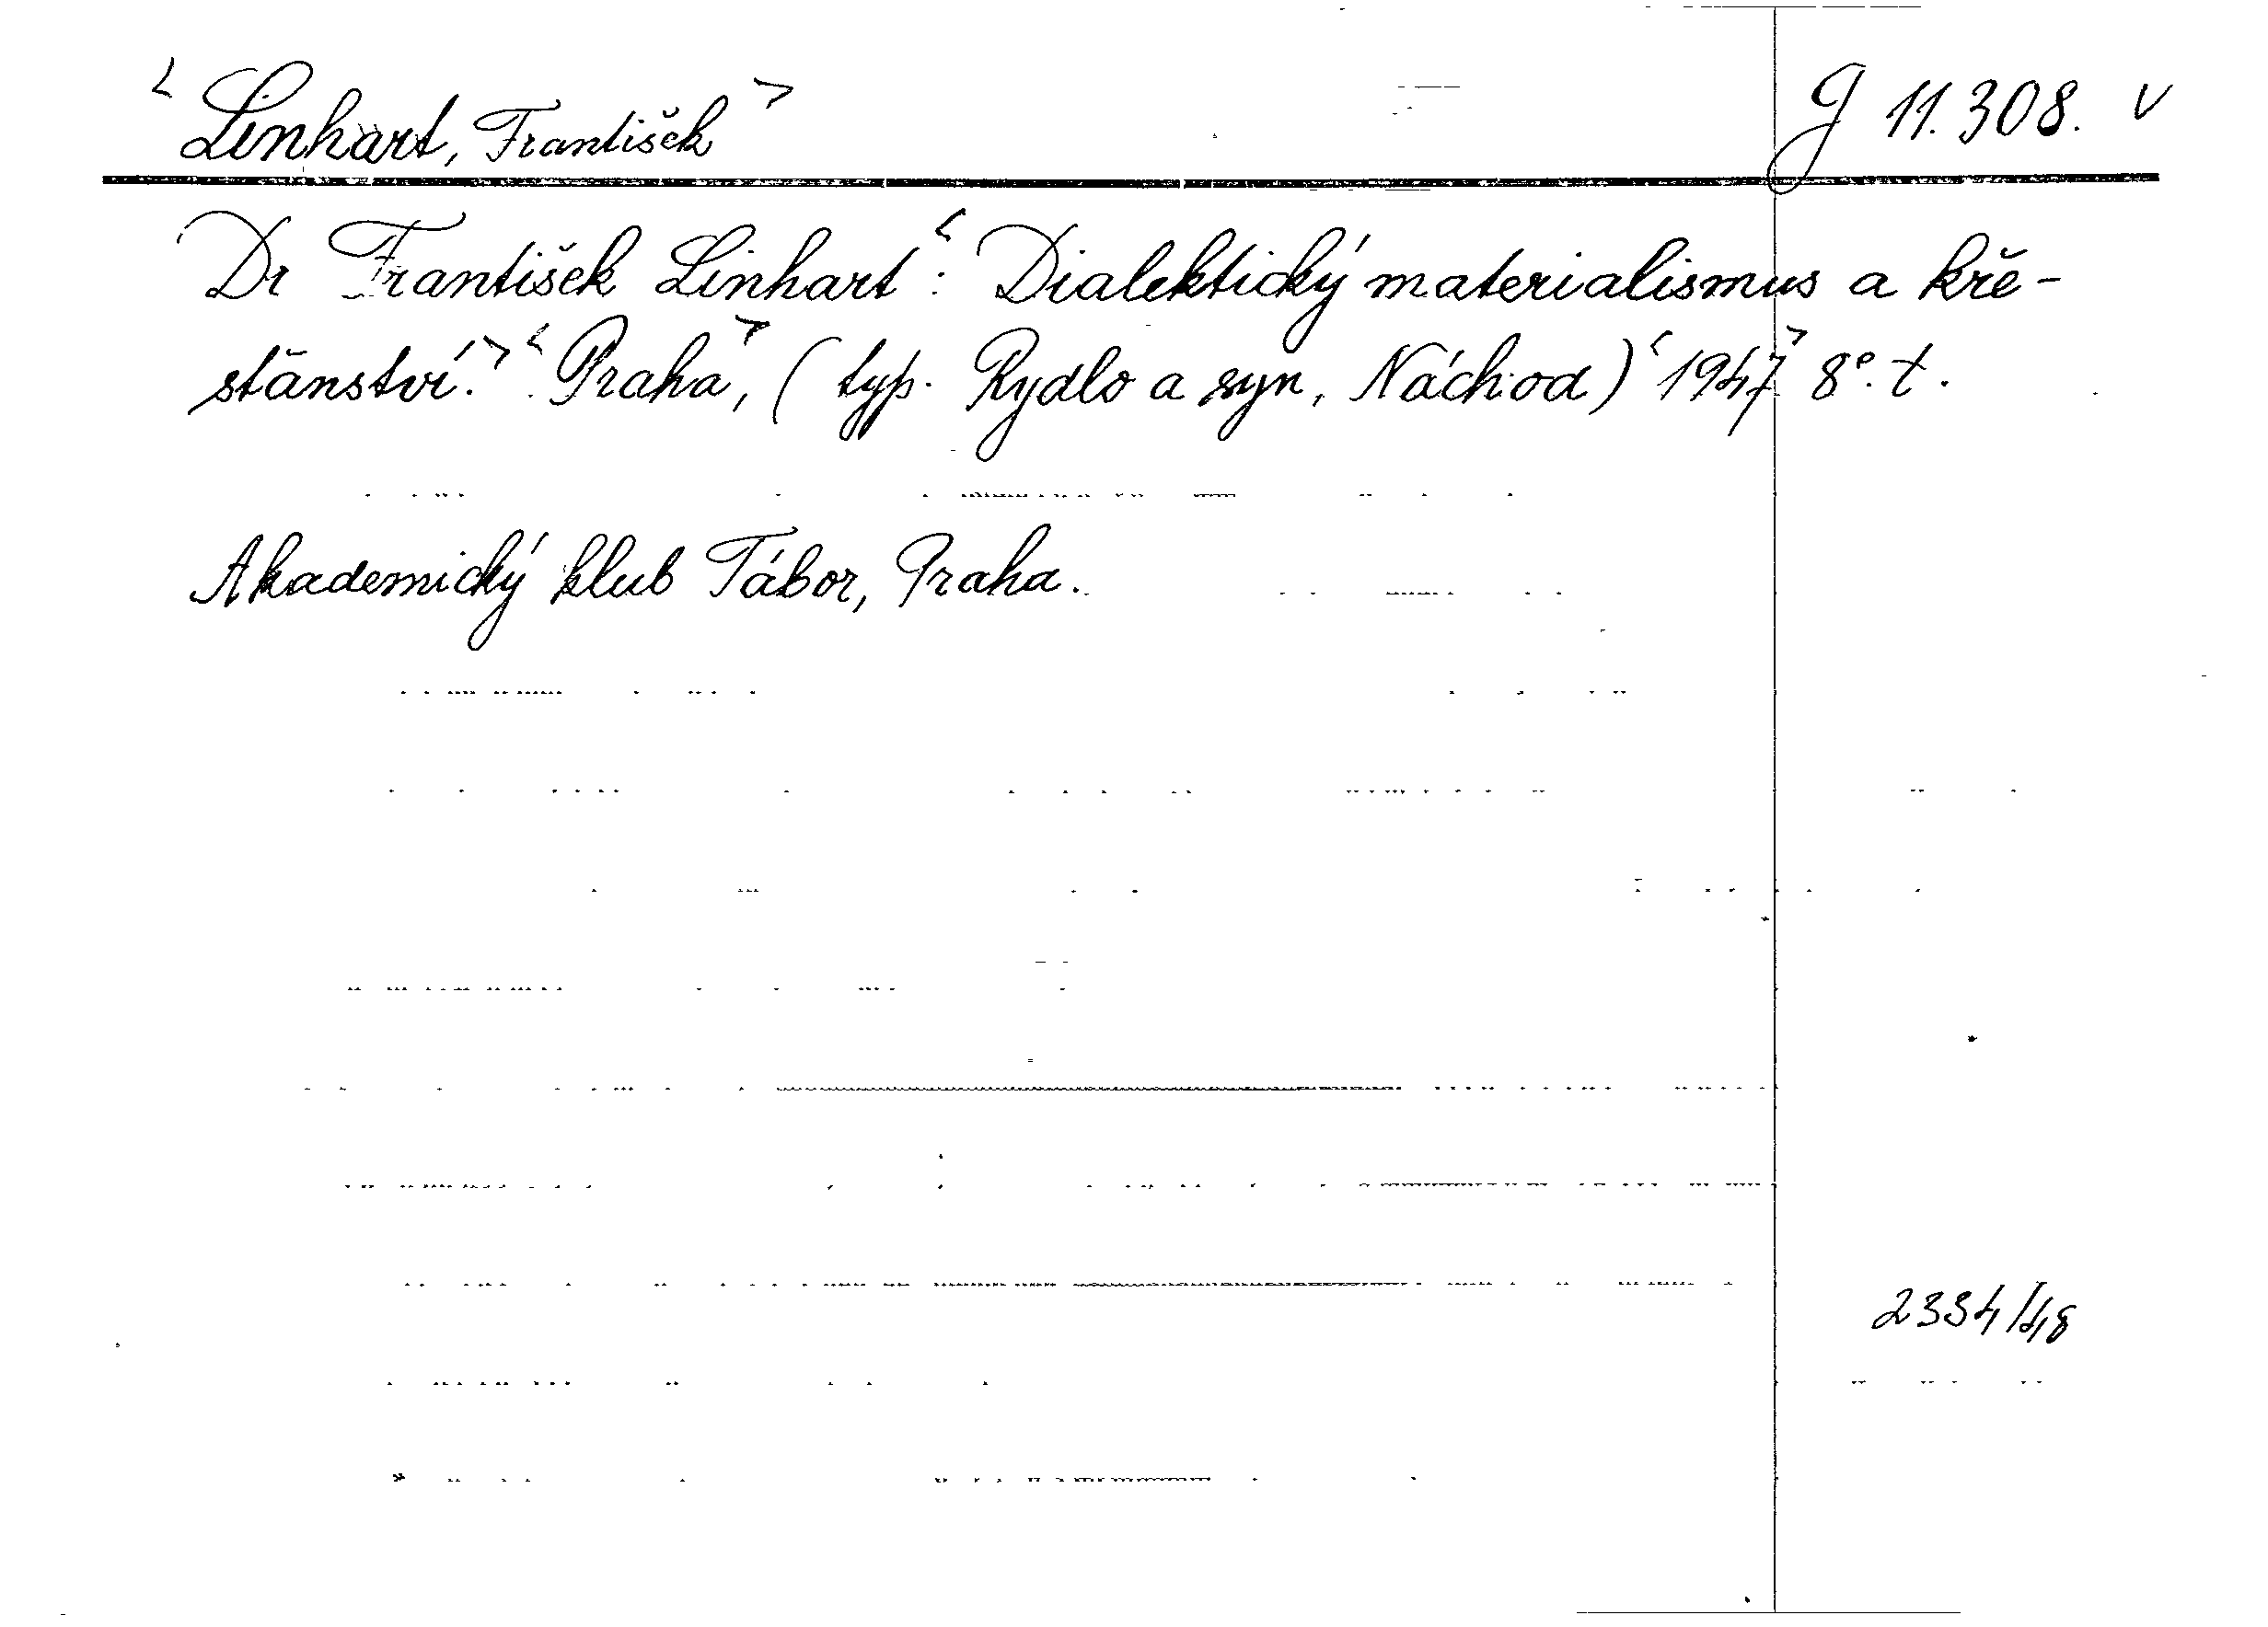 < Linhart, František >
G 11.308. v
Dr František Linhart : < Dialektický materialismus a kře-
sťanství. > < Praha >, ( typ. Rydlo a syn, Náchod ) < 1947 > 8º. t.
Akademický klub Tábor, Praha.
2334/48